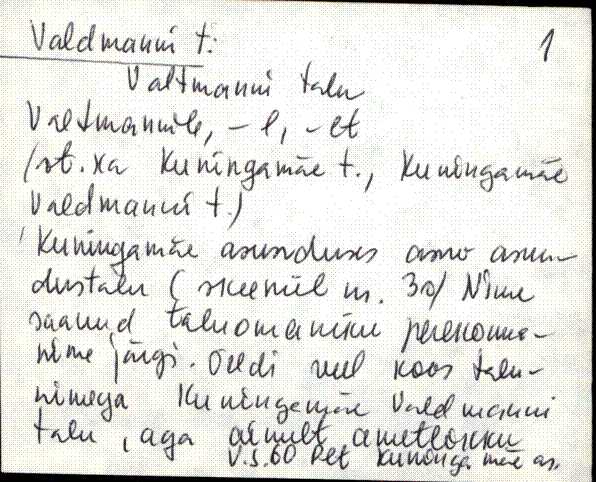 Valdmanni t.
1
Valtmanni talu
Valtmannile, -l, -lt
(st. ka Kuningamäe t., Kuningamäe
Valdmanni t.)
Kuningamäe asunduses asuv asun-
dustalu (skeemil nr. 30) Nime
saanud taluomaniku perekonna-
nime järgi. Öeldi veel koos talu-
nimega Kuningamäe Valdmanni
talu, aga ainult ametlikku
V.s. 60 Pet Kuningamäe as.